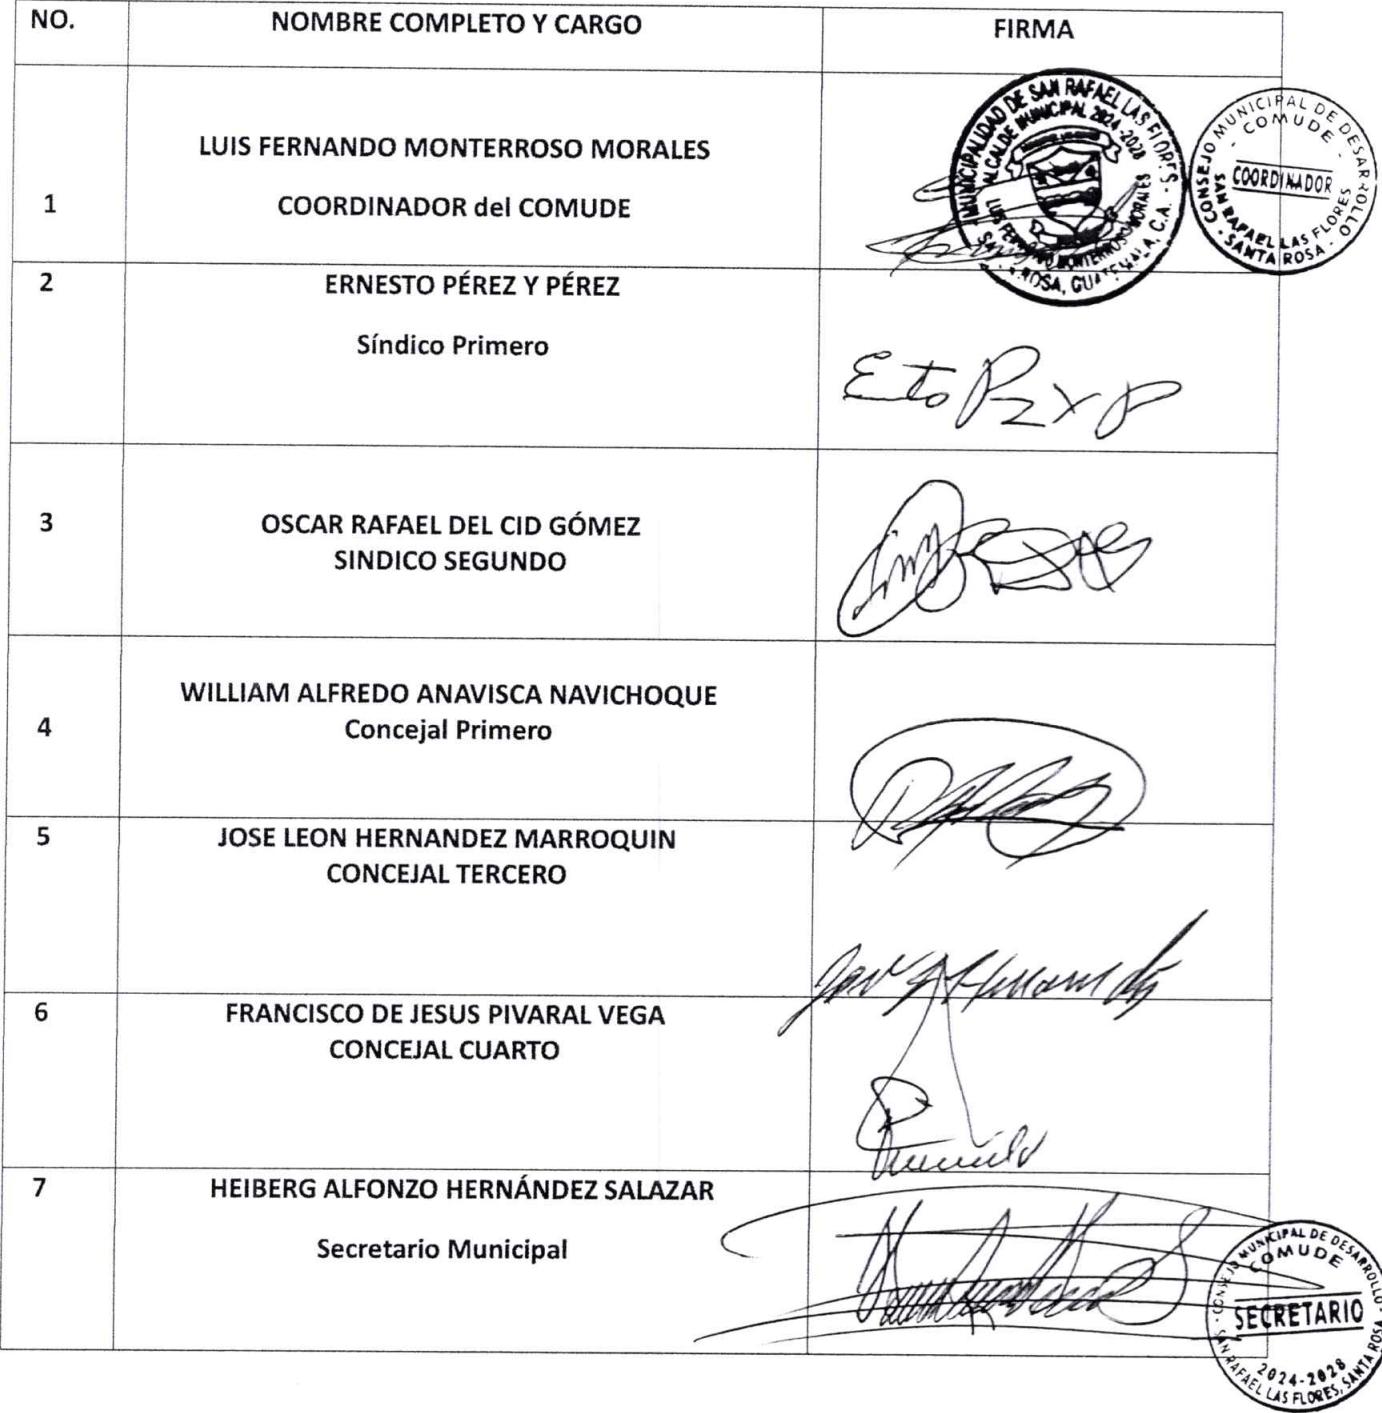 NO.
NOMBRE COMPLETO Y CARGO
FIRMA
1
LUIS FERNANDO MONTERROSO MORALES
COORDINADOR del COMUDE
MUNICIPALIDAD DE SAN RAFAEL LAS FLORES -
ALCALDE MUNICIPAL 2024-2028
ROSA, GUATEMALA, C.A.
CONSEJO MUNICIPAL DE DESARROLLO
- COMUDE -
COORDINADOR
SAN RAFAEL LAS FLORES
SANTA ROSA
2
ERNESTO PÉREZ Y PÉREZ
Síndico Primero
3
OSCAR RAFAEL DEL CID GÓMEZ
SINDICO SEGUNDO
4
WILLIAM ALFREDO ANAVISCA NAVICHOQUE
Concejal Primero
5
JOSE LEON HERNANDEZ MARROQUIN
CONCEJAL TERCERO
6
FRANCISCO DE JESUS PIVARAL VEGA
CONCEJAL CUARTO
7
HEIBERG ALFONZO HERNÁNDEZ SALAZAR
Secretario Municipal
CONSEJO MUNICIPAL DE DESARROLLO
COMUDE
SECRETARIO
2024-2028
SAN RAFAEL LAS FLORES, SANTA ROSA